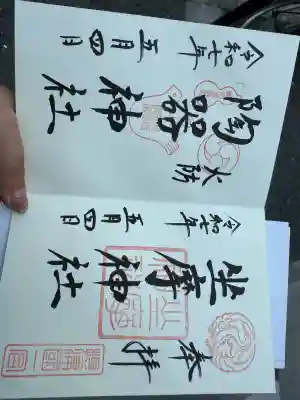 火防
陶器神社
令和七年五月四日
奉拝
坐摩神社
令和七年五月四日